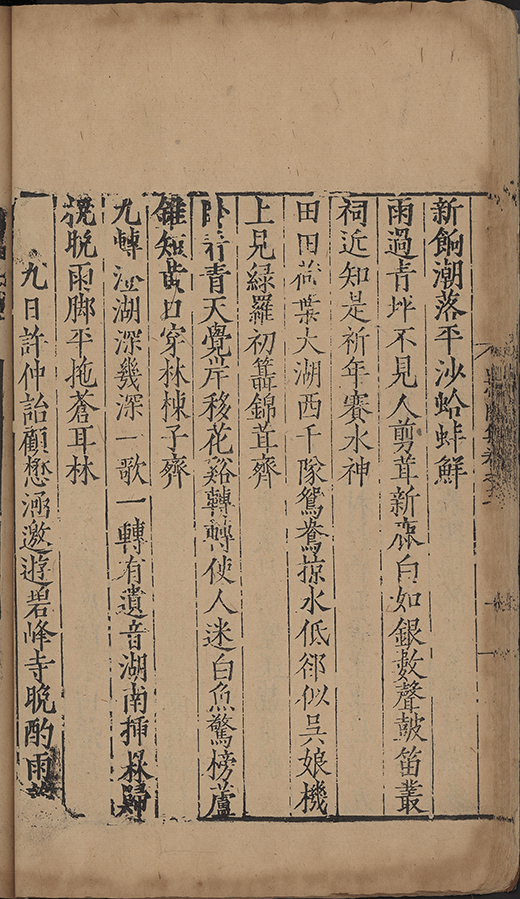 新餉潮落平沙蛤蚌鮮
雨過青坪不見人剪茸新蔴白如銀數聲皷笛叢
祠近知是祈年賽水神
田田荷葉大湖西千隊鴛鴦掠水低郤似吳娘機
上見緑羅初纂錦茸齊
卧看青天覺岸移花谿轉轉使人迷白魚驚榜蘆
錐短黃口穿林棟子齊
九轉湖深幾深一歌一轉有遺音湖南挿秧歸
晚雨脚平拖蒼耳林
九日許仲詒顧懋涵邀遊碧峰寺晚酌雨